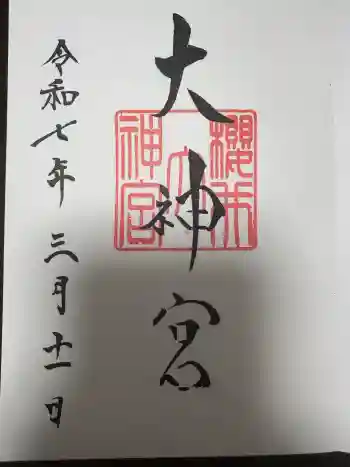 大神宮
令和七年三月十一日
櫻木
大
神宮